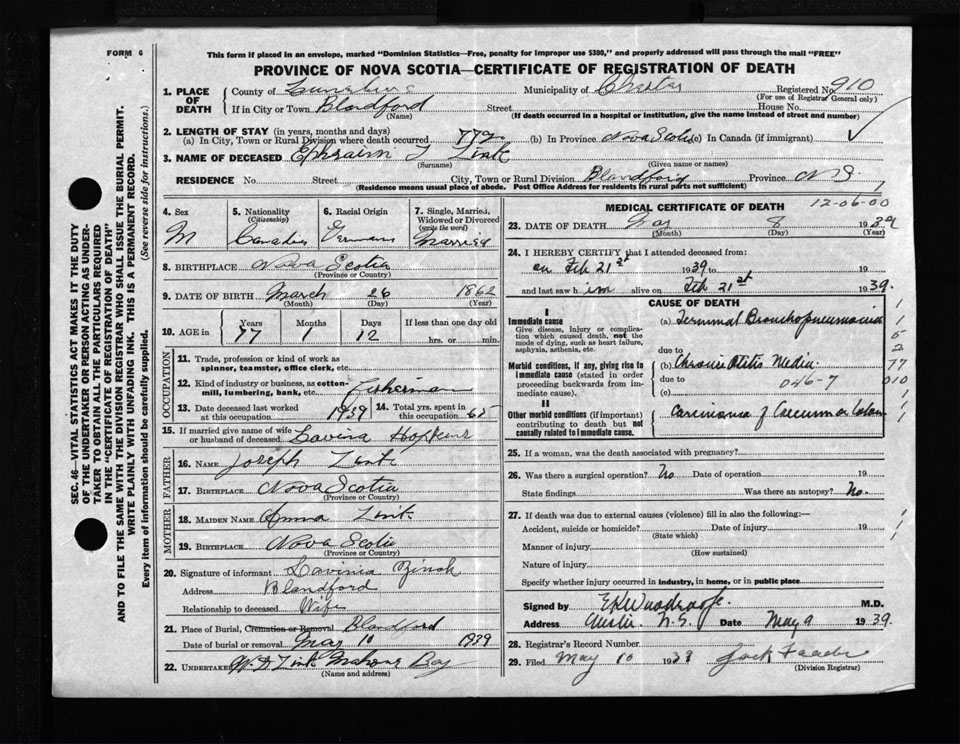 FORM 6
This form if placed in an envelope, marked "Dominion Statistics—Free, penalty for improper use $300," and properly addressed will pass through the mail "FREE"
PROVINCE OF NOVA SCOTIA—CERTIFICATE OF REGISTRATION OF DEATH
SEC. 46—VITAL STATISTICS ACT MAKES IT THE DUTY
OF THE UNDERTAKER OR PERSON ACTING AS UNDER-
TAKER TO OBTAIN ALL THE PARTICULARS REQUIRED
IN THE "CERTIFICATE OF REGISTRATION OF DEATH"
AND TO FILE THE SAME WITH THE DIVISION REGISTRAR WHO SHALL ISSUE THE BURIAL PERMIT.
WRITE PLAINLY WITH UNFADING INK. THIS IS A PERMANENT RECORD.
Every item of information should be carefully supplied. (See reverse side for instructions.)
1. PLACE OF DEATH County of Municipality of Chester Registered No. 910
(For use of Registrar General only)
If in City or Town Blandford Street House No.
(Name) (If death occurred in a hospital or institution, give the name instead of street and number)
2. LENGTH OF STAY (in years, months and days)
(a) In City, Town or Rural Division where death occurred 77 (b) In Province Nova Scotia (c) In Canada (if immigrant)
3. NAME OF DECEASED Ephraim Zink
(Surname) (Given name or names)
RESIDENCE No. Street City, Town or Rural Division Blandford Province N S
(Residence means usual place of abode. Post Office Address for residents in rural parts not sufficient)
4. Sex M
5. Nationality (Citizenship) Canadian
6. Racial Origin German
7. Single, Married, Widowed or Divorced (write the word) Married
8. BIRTHPLACE Nova Scotia
(Province or Country)
9. DATE OF BIRTH March 26 1862
(Month) (Day) (Year)
10. AGE in Years Months Days If less than one day old
77 1 12 hrs. or min.
OCCUPATION
11. Trade, profession or kind of work as spinner, teamster, office clerk, etc.
12. Kind of industry or business, as cotton-mill, lumbering, bank, etc. Fisherman
13. Date deceased last worked at this occupation 1939 14. Total yrs. spent in this occupation 65
15. If married give name of wife or husband of deceased Lavina Hopkins
FATHER
16. NAME Joseph Zink
17. BIRTHPLACE Nova Scotia
(Province or Country)
MOTHER
18. MAIDEN NAME Anna Zink
19. BIRTHPLACE Nova Scotia
(Province or Country)
20. Signature of informant Lavinia Zinck
Address Blandford
Relationship to deceased Wife
21. Place of Burial, Cremation or Removal Blandford
Date of burial or removal May 10 1939
22. UNDERTAKER Zink Mahone Bay
(Name and address)
MEDICAL CERTIFICATE OF DEATH 12-06-00
23. DATE OF DEATH May 8 1939
(Month) (Day) (Year)
24. I HEREBY CERTIFY that I attended deceased from:
on Feb 21st 1939 to 19
and last saw him alive on Feb 21st 1939.
CAUSE OF DEATH
I
Immediate cause (a) Terminal Bronchopneumonia
Give disease, injury or complication which caused death, not the mode of dying, such as heart failure, asphyxia, asthenia, etc.
due to
Morbid conditions, if any, giving rise to immediate cause (stated in order proceeding backwards from immediate cause). (b) Chronic Otitis Media
due to 046-7
(c)
II
Other morbid conditions (if important) contributing to death but not causally related to immediate cause. Carcinoma of Caecum or Colon
1
1
5
2
77
010
1
1
25. If a woman, was the death associated with pregnancy?
26. Was there a surgical operation? No Date of operation 19
State findings Was there an autopsy? No.
27. If death was due to external causes (violence) fill in also the following:—
Accident, suicide or homicide? Date of injury 19
(State which)
Manner of injury
(How sustained)
Nature of injury
Specify whether injury occurred in industry, in home, or in public place
Signed by M.D.
Address Chester N.S. Date May 9 1939.
28. Registrar's Record Number
29. Filed May 10 1939 Jack
(Division Registrar)